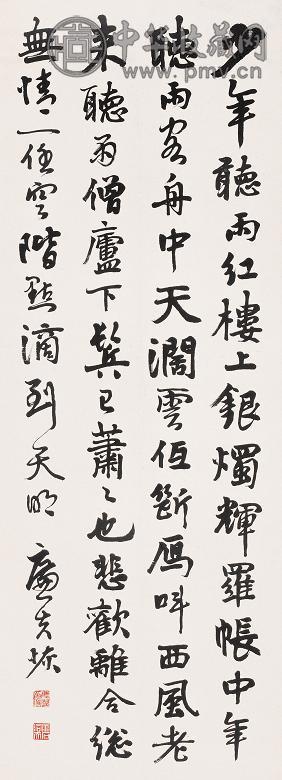 中华收藏网
www.pmv.cn
少年聽雨紅樓上銀燭輝羅帳中年
聽雨客舟中天濶雲低斷鴈叫西風老
來聽雨僧廬下鬢已蕭々也悲歡離合總
無情一任空階點滴到天明